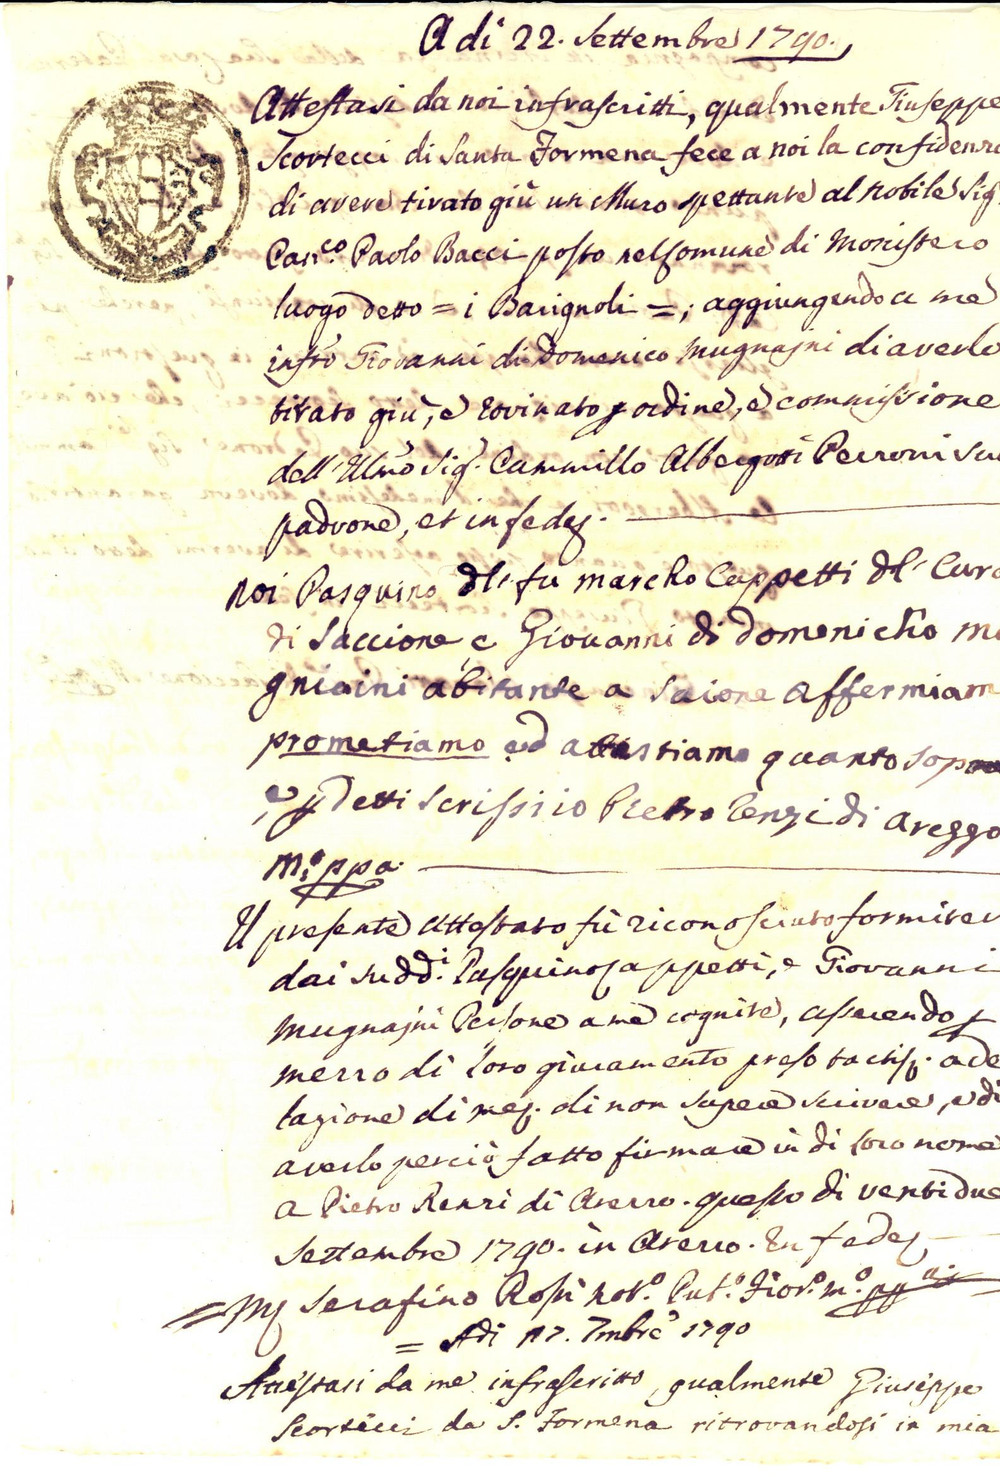 A di 22. Settembre 1790.
Attestasi da noi infrascritti, qualmente Giuseppe
Scortecci di Santa Formena fece a noi la confidenza
di avere tirato giù un Muro spettante al Nobile Sig.
Canco. Paolo Bacci posto nel Comune di Monistero
luogo detto = i Barignoli =; aggiungendo a me
infro Giovanni di Domenico Mugnajni di averlo
tirato giù, e rovinato p ordine, e commissione
dell' Illmo Sig. Cammillo Albergotti Perroni suo
padrone, et in fede.
Noi Pasquino dl' fu marcho Cappetti dl' Cura
di Saccione e Giovanni di domenicho mu
gniaini abitante a Saione affermiam
prometiamo ed attestiamo quanto sopra
e p detti scrissi io Pietro Renzi di areggo
mo. ppa.
Il presente Attestato fù riconosciuto formiter
dai sudd.i Pasquino Cappetti, e Giovanni
Mugnajni Persone a me cognite, asserendo p
merro di loro giuramento preso tactis. ade
tazione di me. di non sapere scrivere, e di
averlo perciò fatto firmare in di loro nome
a Pietro Renri di Arerro. questo di ventidue
Settembre 1790. in Arerro. In fede
= Mj Serafino Rosi Noto. Pubo. Fioro. mo. ppa. =
= Adi 17. 7mbre 1790
Attestasi da me infrascritto, qualmente Giuseppe
Scortecci da S. Formena ritrovandosi in mia